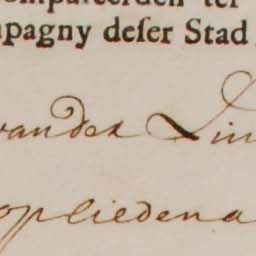 mpareerden ter
pagny deser Stad
vander Lin
opliedena